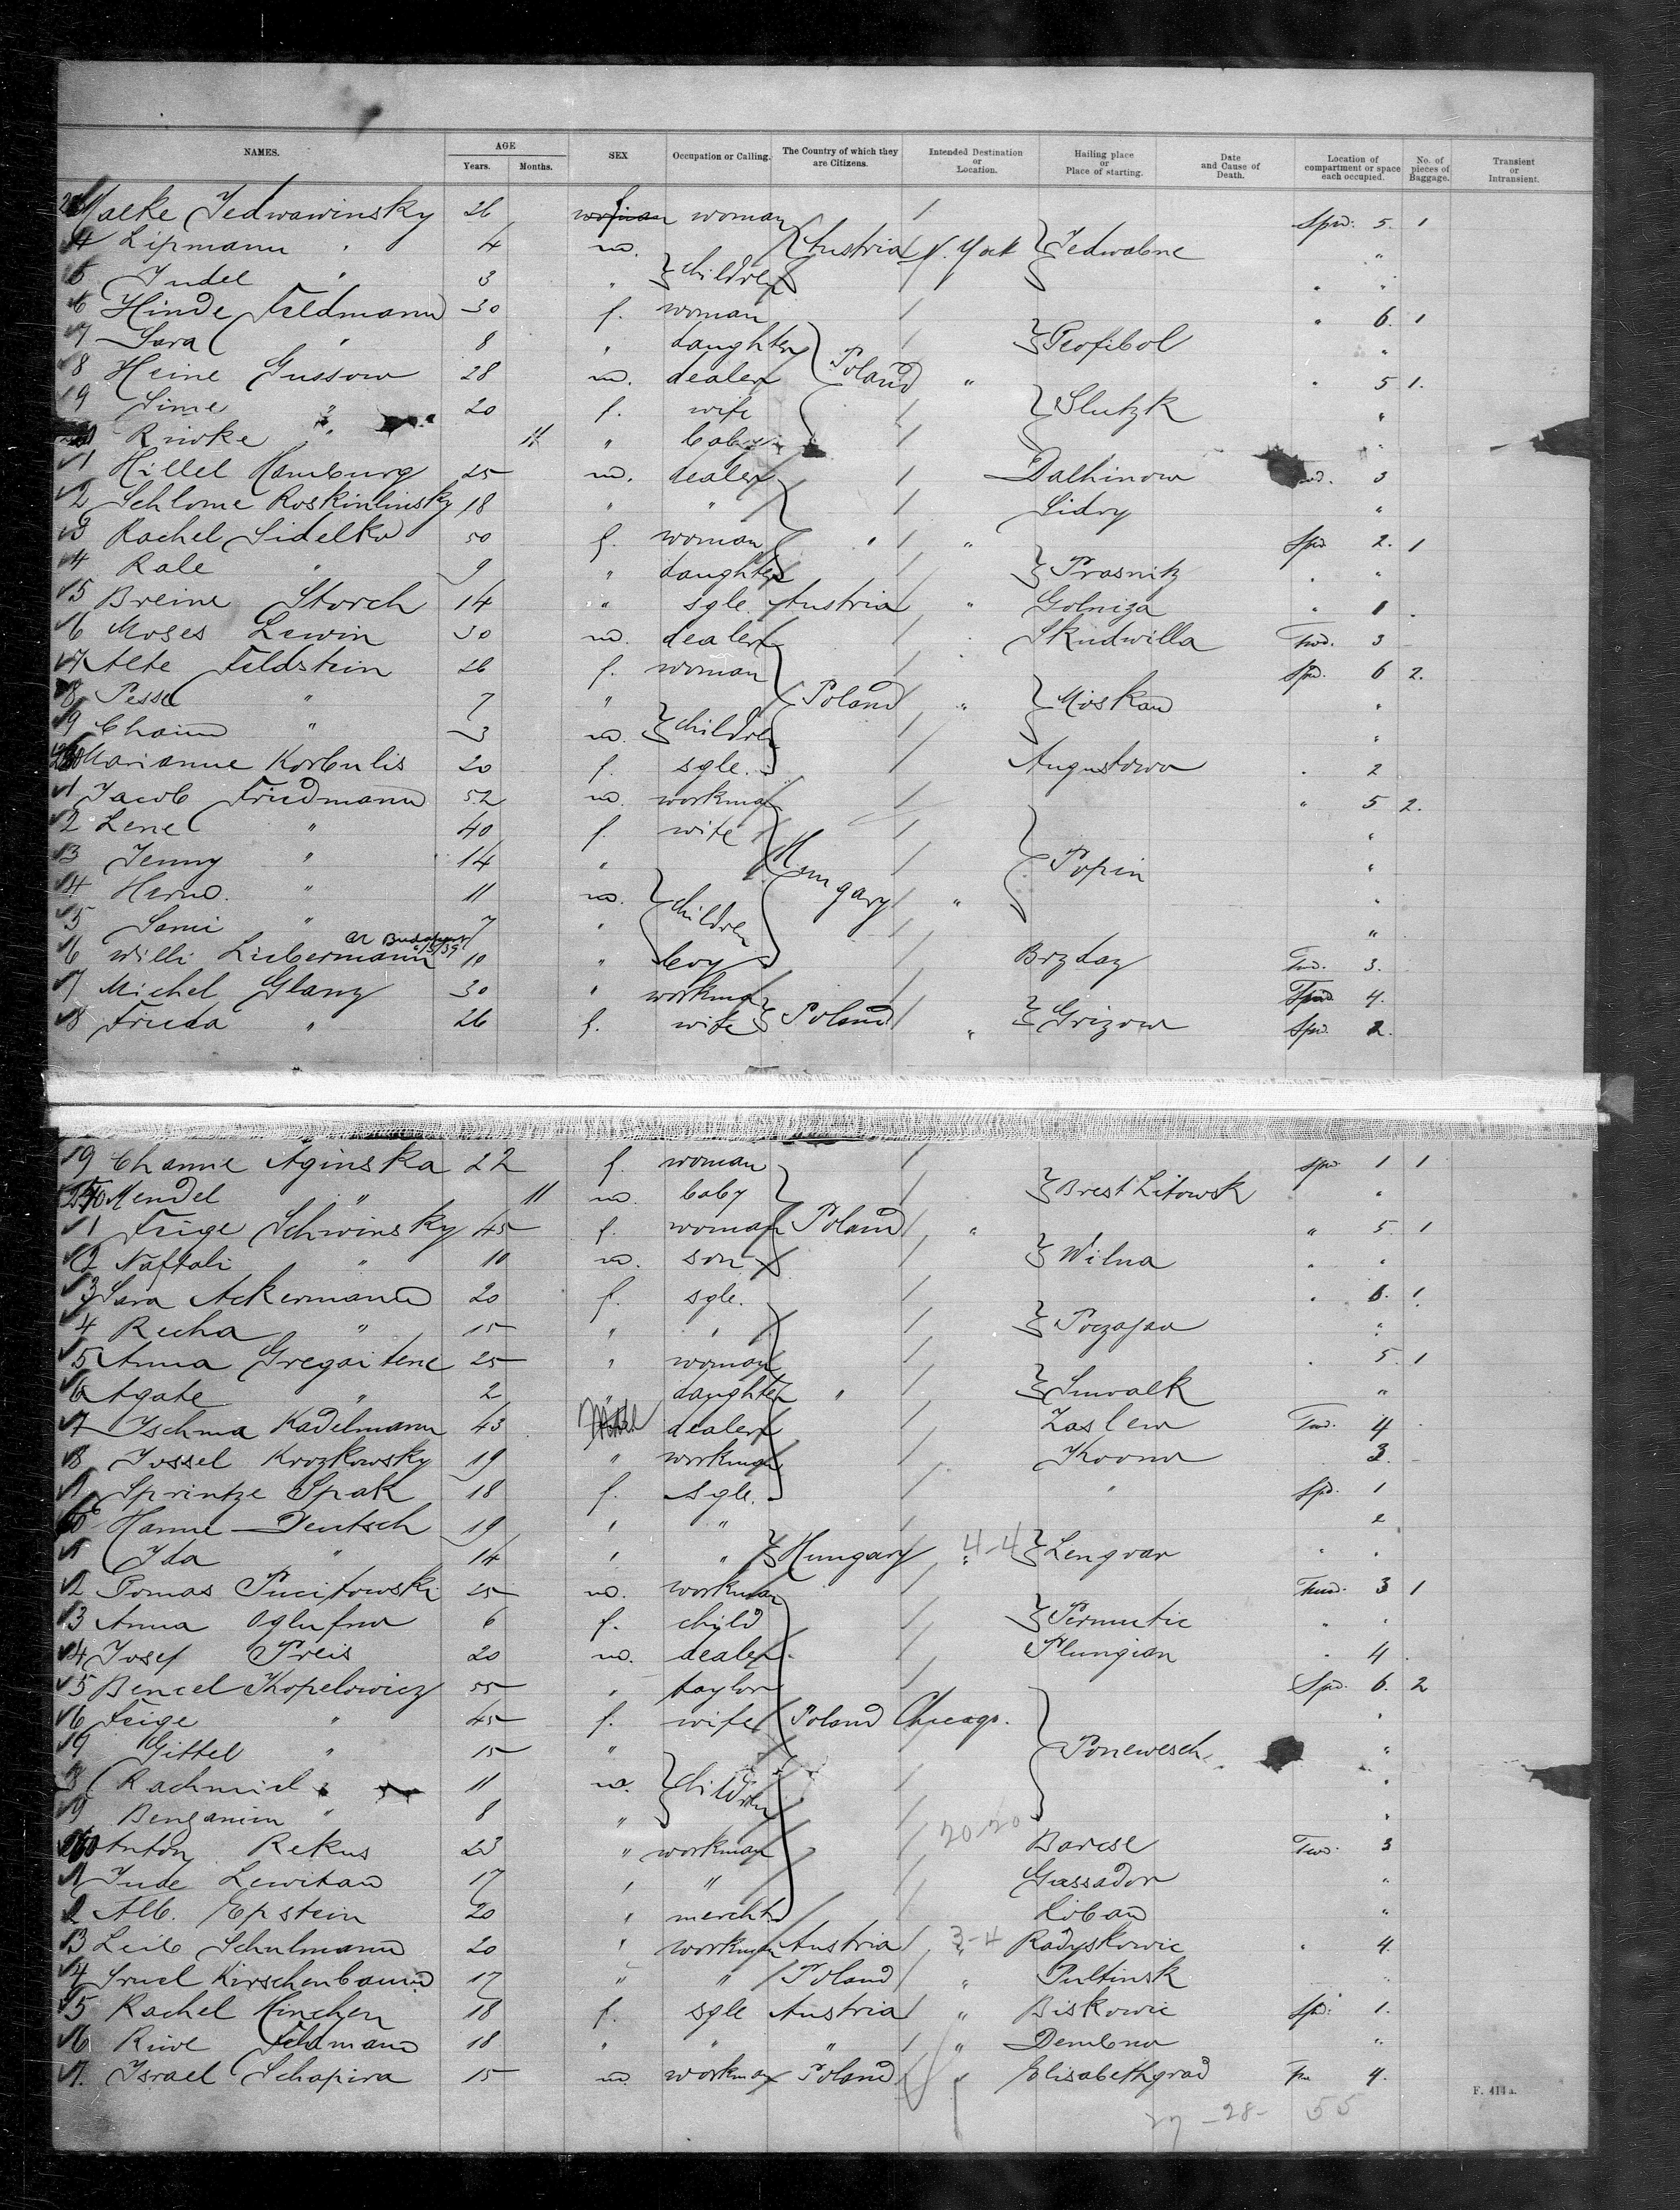 NAMES. AGE Years. Months. SEX Occupation or Calling. The Country of which they are Citizens. Intended Destination or Location. Hailing place or Place of starting. Date and Cause of Death. Location of compartment or space each occupied. No. of pieces of Baggage. Transient or Intransient.
Malke Jedwawinsky 26 f. woman Spd. 5. 1
4 Lipmann " 4 m. children Austria N. York Jedwabne "
5 Judel " 3 " " "
6 Hinde Feldmann 30 f. woman " 6. 1
7 Sara " 8 " daughter Poland Teofibol "
8 Heine Gussow 28 m. dealer " " 5 1.
9 Sime " 20 f. wife Slutzk "
Riwke " 11 " baby "
1 Hillel Hamburg 25 m. dealer Dalhinow 3
2 Schlome Roskinlinsky 18 " " Sidry "
3 Rachel Sidelko 50 f. woman " " Spd 2. 1
4 Rale " 9 " daughter Prasnitz " "
5 Breine Storch 14 " sgle. Austria " Golniza " 1
6 Moses Lewin 30 m. dealer " Skudwilla Twd. 3
7 Alte Feldstein 26 f. woman Spd. 6 2.
8 Pesse " 7 " children Poland " Moskau "
9 Chaim " 3 m. "
Marianne Korbulis 20 f. sgle. Augustowo " 2
1 Jacob Friedmann 52 m. workman " 5 2.
2 Lene " 40 f. wife "
3 Jenny " 14 " Hungary Popin "
4 Herm. " 11 m. children " "
5 Sami " 7 " "
6 Willi Liebermann 10 " boy Brzday Twd. 3.
7 Michel Glanz 30 " workman Spd 4.
8 Frieda " 26 f. wife Poland " Grizow Spd. 2.
19 Channe Aginska 22 f. woman Spd. 1 1
240 Mendel " 11 m. baby Brest Litowsk " "
1 Feige Schwinsky 45 f. woman Poland " " 5. 1
2 Naftali " 10 m. son Wilna " "
3 Sara Ackermann 20 f. sgle. " 6. 1.
4 Recha " 15 " " "
5 Anna Gregaitene 25 " woman 5. 1
6 Agate " 2 " daughter " Suwalk "
7 Ischma Kadelmann 43 dealer Zaslew Twd. 4
8 Jossel Krozkowsky 19 " workman Kowno 3.
Sprintze Spak 18 f. sgle. " Spd. 1
Hanne Deutsch 19 " " 2
1 Ida " 14 " " Hungary 4-4 " Lengvar " "
2 Tomas Pucitowski 25 m. workman Twd. 3 1
3 Anna Oglufno 6 f. child Permutic " "
4 Josef Preis 20 m. dealer Plungian " 4
5 Bencel Kopelowicz 55 " taylor Spd. 6. 2
6 Feige " 45 f. wife Poland Chicago. "
Gittel " 15 " children Ponewesch "
Rachmiel " 11 m. "
9 Benjamin " 8 " "
260 Anton Rekus 23 " workman 20-20 Barese Twd. 3
1 Jude Lewitan 17 " " Gassador "
2 Alb. Epstein 20 " mercht. Liban "
3 Leib Schulmann 20 " workman Austria 3-4 " Radyskowic " 4.
4 Sruel Kirschenbaum 17 " " Poland " Pultinsk "
5 Rachel Hinchen 18 f. sgle Austria " Biskowic Spd. 1.
6 Riwe Feldmann 18 " " " " Dembno "
7. Israel Schapira 15 m. workman Poland " Elisabethgrad 4.
27 -28- 55
F. 414 a.